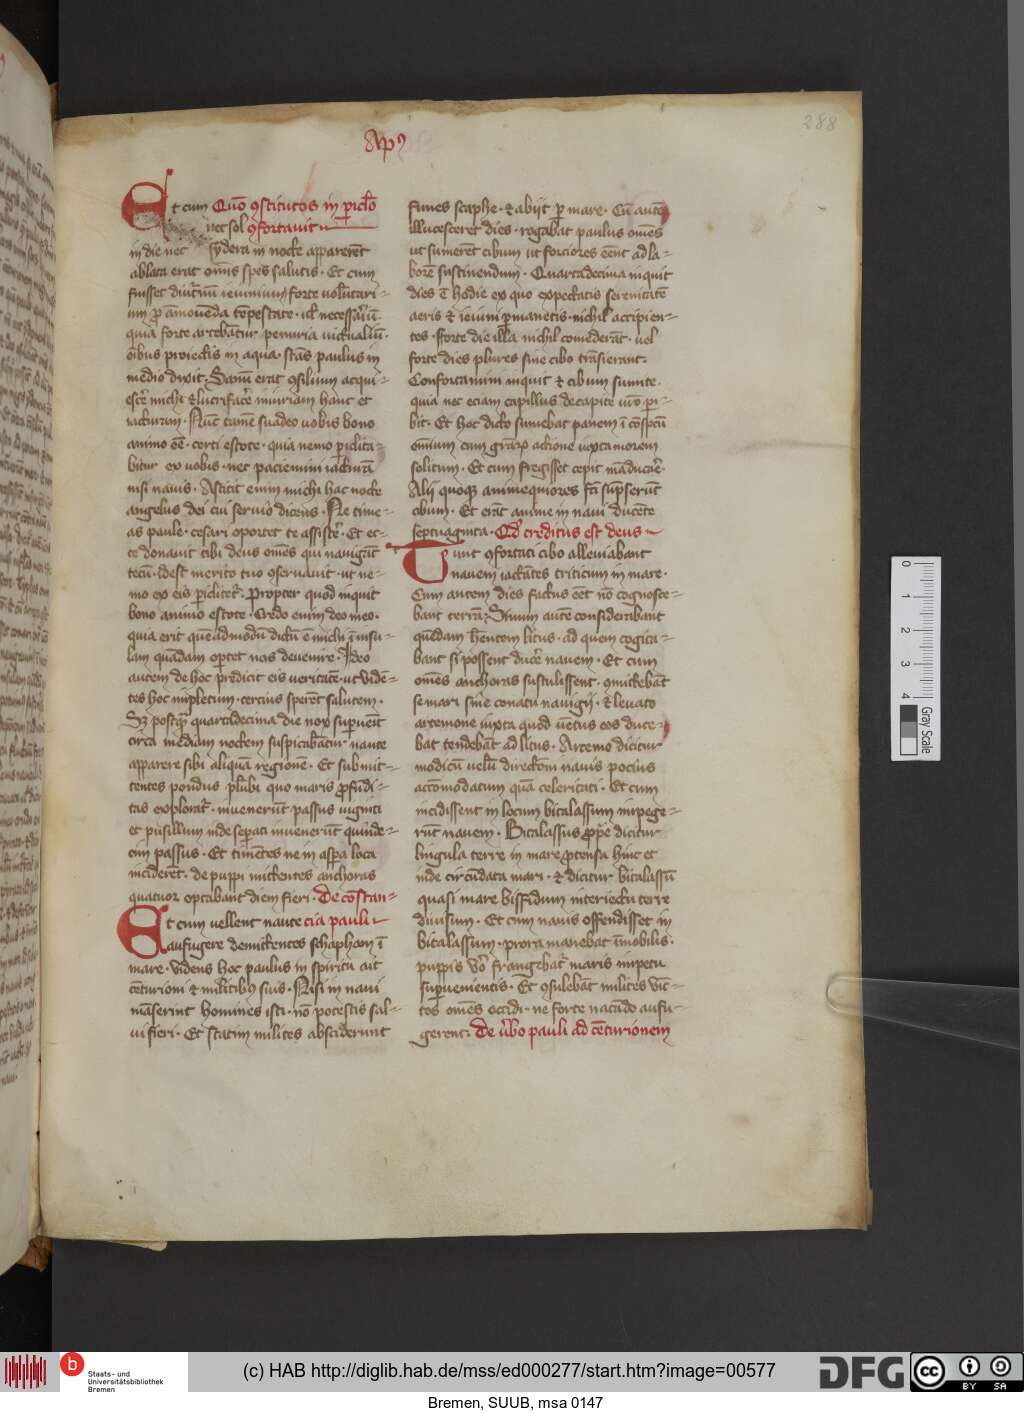 288
Ap9
Et cum Quō ↄstitutos in piclo
nec sol ↄfortauit
in die nec sydera in nocte apparerēt
ablata erat omīs spes salutis · Et cum
fuisset diutnū ieiunium forte voluntari-
um p āmouēda tēpestate · ul necessariū
quia forte artebātur penuria uictualiū ·
ōibus proiectis in aqua · stās paulus in
medio dixit · Sanū erat ↄsilium acqui-
escē michi & lucrifacē iniuriam hanc et
iacturam · Nūc tamē suadeo uobis bono
animo eē · certi estote · quia nemo piclita-
bitur ex uobis · nec paciemini iacturā
nisi nauis · Astitit enim michi hac nocte
angelus dei cui seruio dicens · Ne time-
as paule · cesari oportet te assistē · Et ec-
ce donauit tibi deus omēs qui nauigāt
tecū · Idest merito tuo ↄseruauit · ut ne-
mo ex eis piclitet · Propter quod inquit
bono animo estote · Credo enim deo meo ·
quia erit quēadmodū dictū ē michi · ī insu-
lam quādam optet nos deuenire · Ideo
autem de hoc predicit eis ueritatē · ut uidē-
tes hoc impletum · tercius sperēt salutem ·
Sz postq quartadecima die nox supuēit
circa mediam noctem suspicabātur naute
apparere sibi aliquā regionē · Et submit-
tentes pondus plūbi quo maris pfūdi-
tas explorat · inuenerūt passus uiginti
et pusillum inde sepati inuenerūt quīnde-
cim passus · Et timētes ne in aspa loca
inciderēt · de puppi mittentes anchoras
quatuor optabant diem fieri · De cōstan-
Et cum vellent naute cia pauli
aufugere demittentes schapham ī
mare · videns hoc paulus in spiritu ait
cēturioni & militibus suis · Nisi in naui
māserint homines isti · nō potestis sal-
ui fieri · Et statim milites absciderunt
funes scaphe · & abijt p mare · Cū autē
illucesceret dies · rogabat paulus omēs
ut sumerēt cibum ut forciores eēnt ad la-
borē sustinendum · Quartadecima inquit
dies ē hodie ex quo expectatis serenitatē
aeris & ieiuni pmanetis · nichil accipien-
tes · Forte die illa nichil comederāt · uel
forte dies plures sine cibo trāsierant ·
Confortamini inquit & cibum sumite ·
quia nec eciam capillus de capite uro pi-
bit · Et hoc dicto sumebat panem ī cōspcū
omnium cum graz actione iuxta morem
solitum · Et cum fregisset cepit māducaē ·
Alij quoq animequiores fti sūpserūt
cibum · Et erāt anime in naui ducēte
septuaginta · Qd creditus est deus
Tunc ↄfortati cibo alleuiabant
nauem iactātes triticum in mare ·
Cum autem dies factus eēt nō cognosce-
bant terrā · Sinum autē considerabant
quēdam hēntem litus · ad quem cogita-
bant si possent ducē nauem · Et cum
omēs anchoras sustulissent · ↄmittebāt
se mari sine conatu nauigij · & leuato
artemone iuxta quod uētus eos duce-
bat tendebāt ad litus · Artemo dicitur
modicū velū directoī nauis pocius
accōmodatum quā celeritati · Et cum
incidissent in locum bitalassum impege-
rūt nauem · Bitalassus ppe dicitur
lingula terre in mare ptensa hinc et
inde circūdata mari · & dicitur bitalassū
quasi mare biffidum interiectu terre
diuisum · Et cum nauis offendisset in
bitalassum · prora manebat īmobilis ·
puppis vo frangebat maris impetu
supuenientis · Et ↄsulebāt milites vīc-
tos omēs occidi · ne forte natādo aufu-
gerent · De ubo pauli ad cēturionem
0
1
2
3
4
Gray Scale
b
Staats- und
Universitätsbibliothek
Bremen
(c) HAB http://diglib.hab.de/mss/ed000277/start.htm?image=00577
DFG
cc
BY SA
Bremen, SUUB, msa 0147